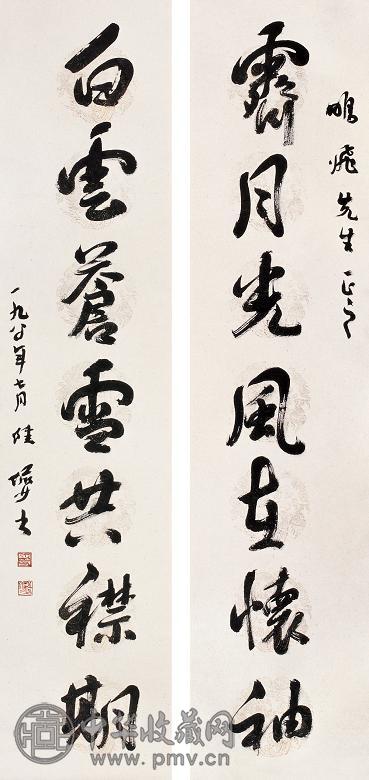 飛先生正之
霽月光風在懷袖
白雲蒼雪共襟期
一九八〇年七月陸儼少
中华收藏网
www.pmv.cn